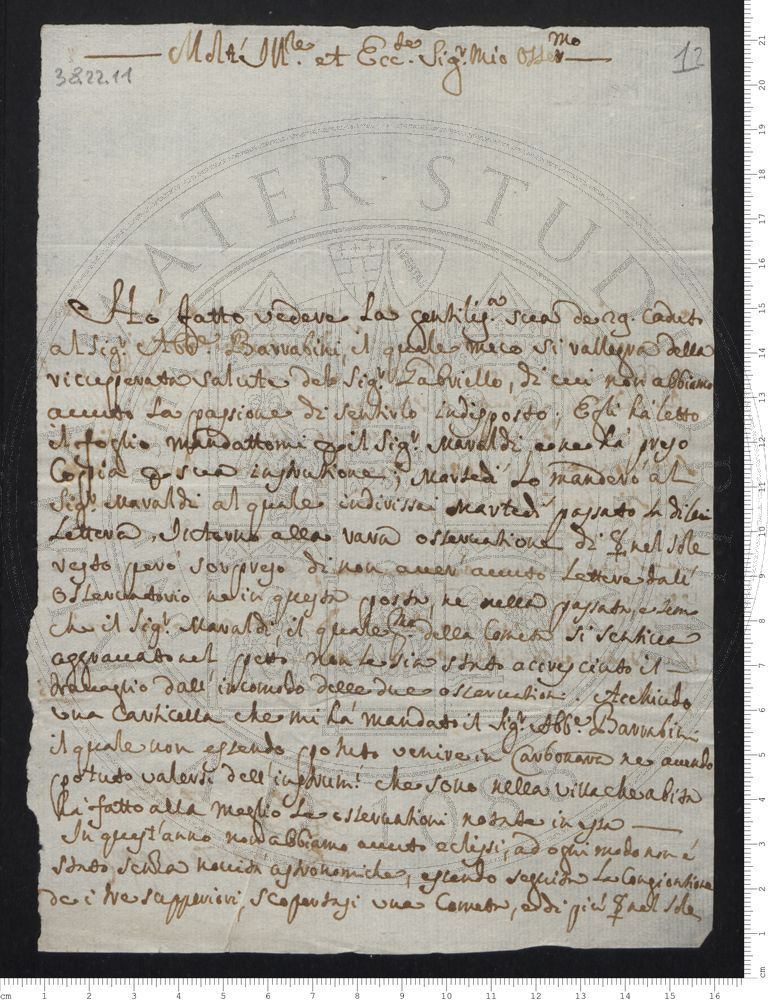 Molt' Ill.re et Ecc.te Sig.r Mio Osser.mo
12
38.22.11
Hó fatto vedere la gentiliss.a sua de 29. Caduto
al Sig.r Abb.e Barrabini, il quale meco si rallegra della
riccupperata salute del Sig.r Gabriello, di cui non abbiamo
auuto la passione di sentirlo indisposto; Egli há letto
il foglio mandattomi il Sig.r Maraldi, e ne há preso
Coppia sua instrutione; Martedi lo manderó al
Sig.r Maraldi al quale indirissai Martedi passato la di lei
Lettera, Intorno alla rara osseruatione di ☿ nel Sole
resto peró sorpreso di non auer auuto Lettere dall'
Osseruatorio ne in questa posta, ne nella passata, e temo
che il Sig.r Maraldi, il quale della Cometa si sentiua
aggrauato nel petto non le sia stato accresciuto il
trauaglio dall' incomodo delle due osseruationi. Acchiudo
una Carticella che mi há mandato il Sig.r Abb.e Barrabini
il quale non essendo potuto venire in Carbonara ne auendo
potuto valersi dell' instrum.i che sono nella villa che abita
há fatto alla meglio le osseruationi notate in essa
In quest' anno non abbiamo auuto eclissi, ad ogni modo non é
stato senza nouitá astronomiche, essendo seguita la Congiontione
de i tre supperiori, scopertasi una Cometa, ed di piú ☿ nel Sole